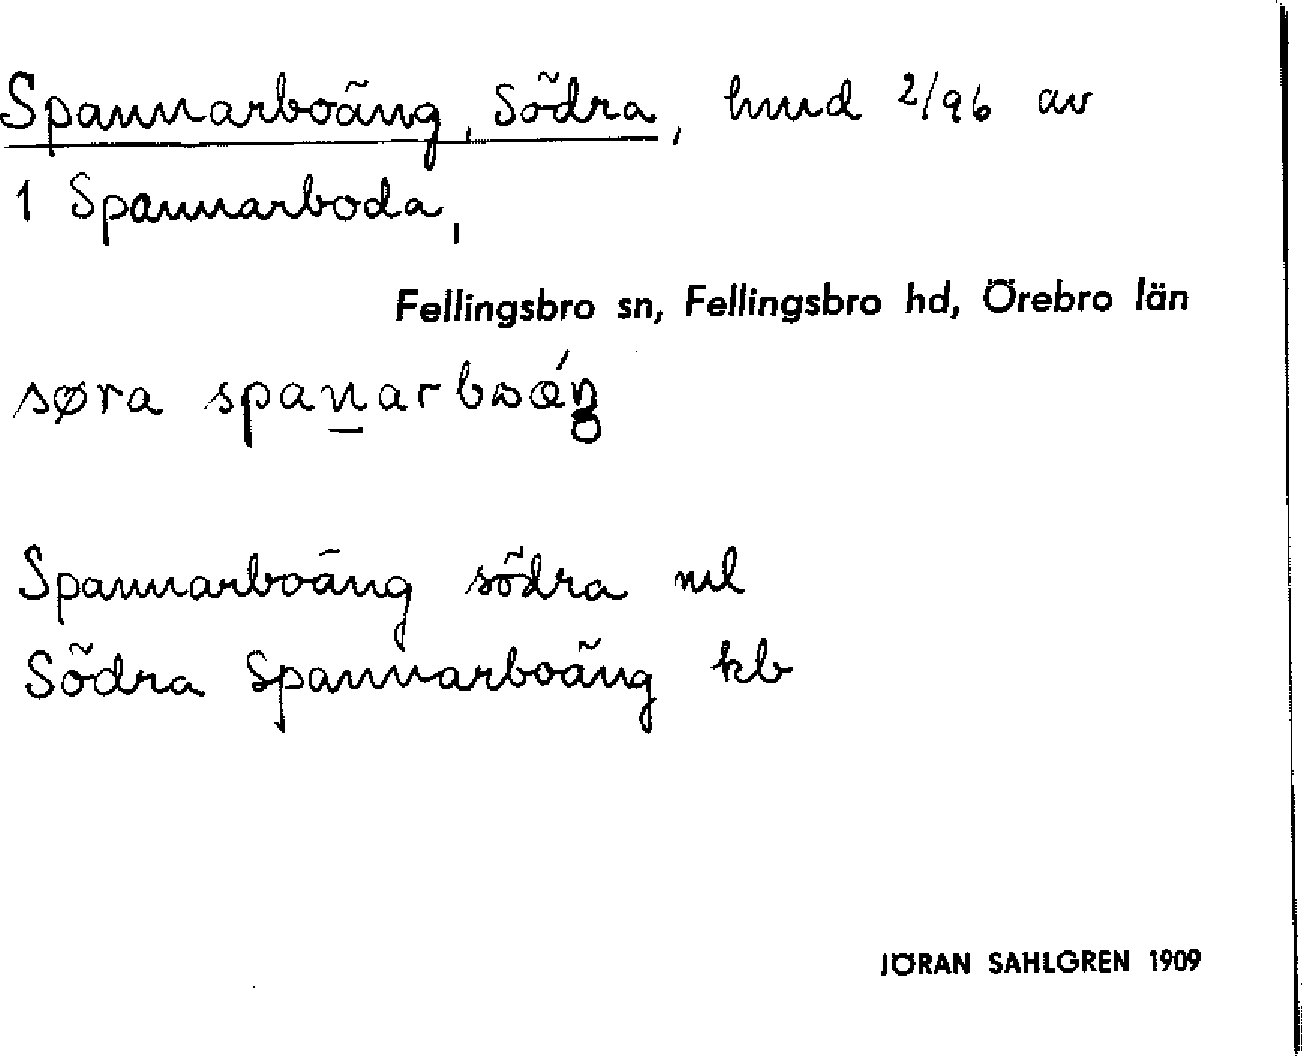 Spannarboäng, Södra, hmd 2/96 av
1 Spannarboda,
Fellingsbro sn, Fellingsbro hd, Örebro län
søra
Spannarboäng södra ml
Södra Spannarboäng kb
JÖRAN SAHLGREN 1909